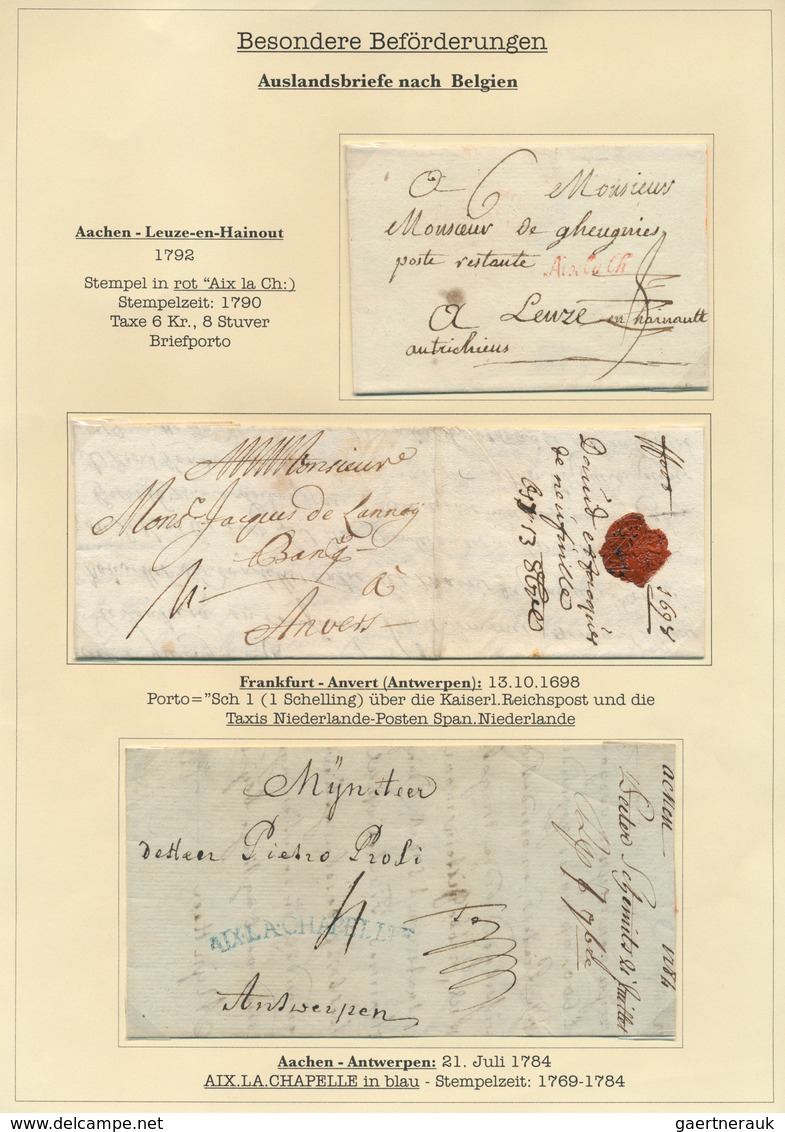 Besondere Beförderungen
Auslandsbriefe nach Belgien
Aachen - Leuze-en-Hainout
1792
Stempel in rot "Aix la Ch:)
Stempelzeit: 1790
Taxe 6 Kr., 8 Stuver
Briefporto
a 6 Monsieur
Monsieur de gheugnies
poste restante
Aix la Ch
a Leuze en hainault
autrichiens
Monsieur
Mons. Jacques de Lannoy
Banq.
a
Anvers
David et Jacques
de neufuille
13
1698
Frankfurt - Anvert (Antwerpen): 13.10.1698
Porto="Sch 1 (1 Schelling) über die Kaiserl.Reichspost und die
Taxis Niederlande-Posten Span.Niederlande
Mÿnheer
deHeer Pietro Proli
AIX.LA.CHAPELLE
Antwerpen
achen 1784
21 Juillet
Aachen - Antwerpen: 21. Juli 1784
AIX.LA.CHAPELLE in blau - Stempelzeit: 1769-1784
gaertnerauk